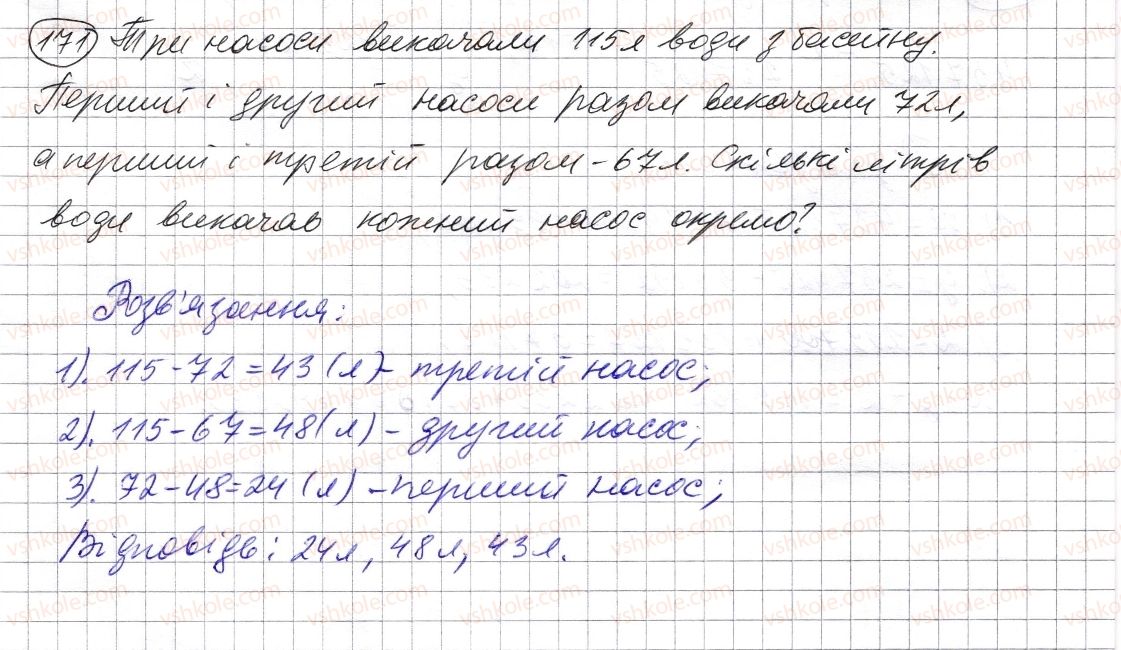 171 Три насоси викачали 115л води з басейну.
Перший і другий насоси разом викачали 72л,
а перший і третій разом - 67л. Скількі літрів
води викачав кожний насос окремо?
Розв'язання:
1). 115 - 72 = 43 (л) - третій насос;
2). 115 - 67 = 48 (л) - другий насос;
3). 72 - 48 = 24 (л) - перший насос;
Відповідь: 24л, 48л, 43л.